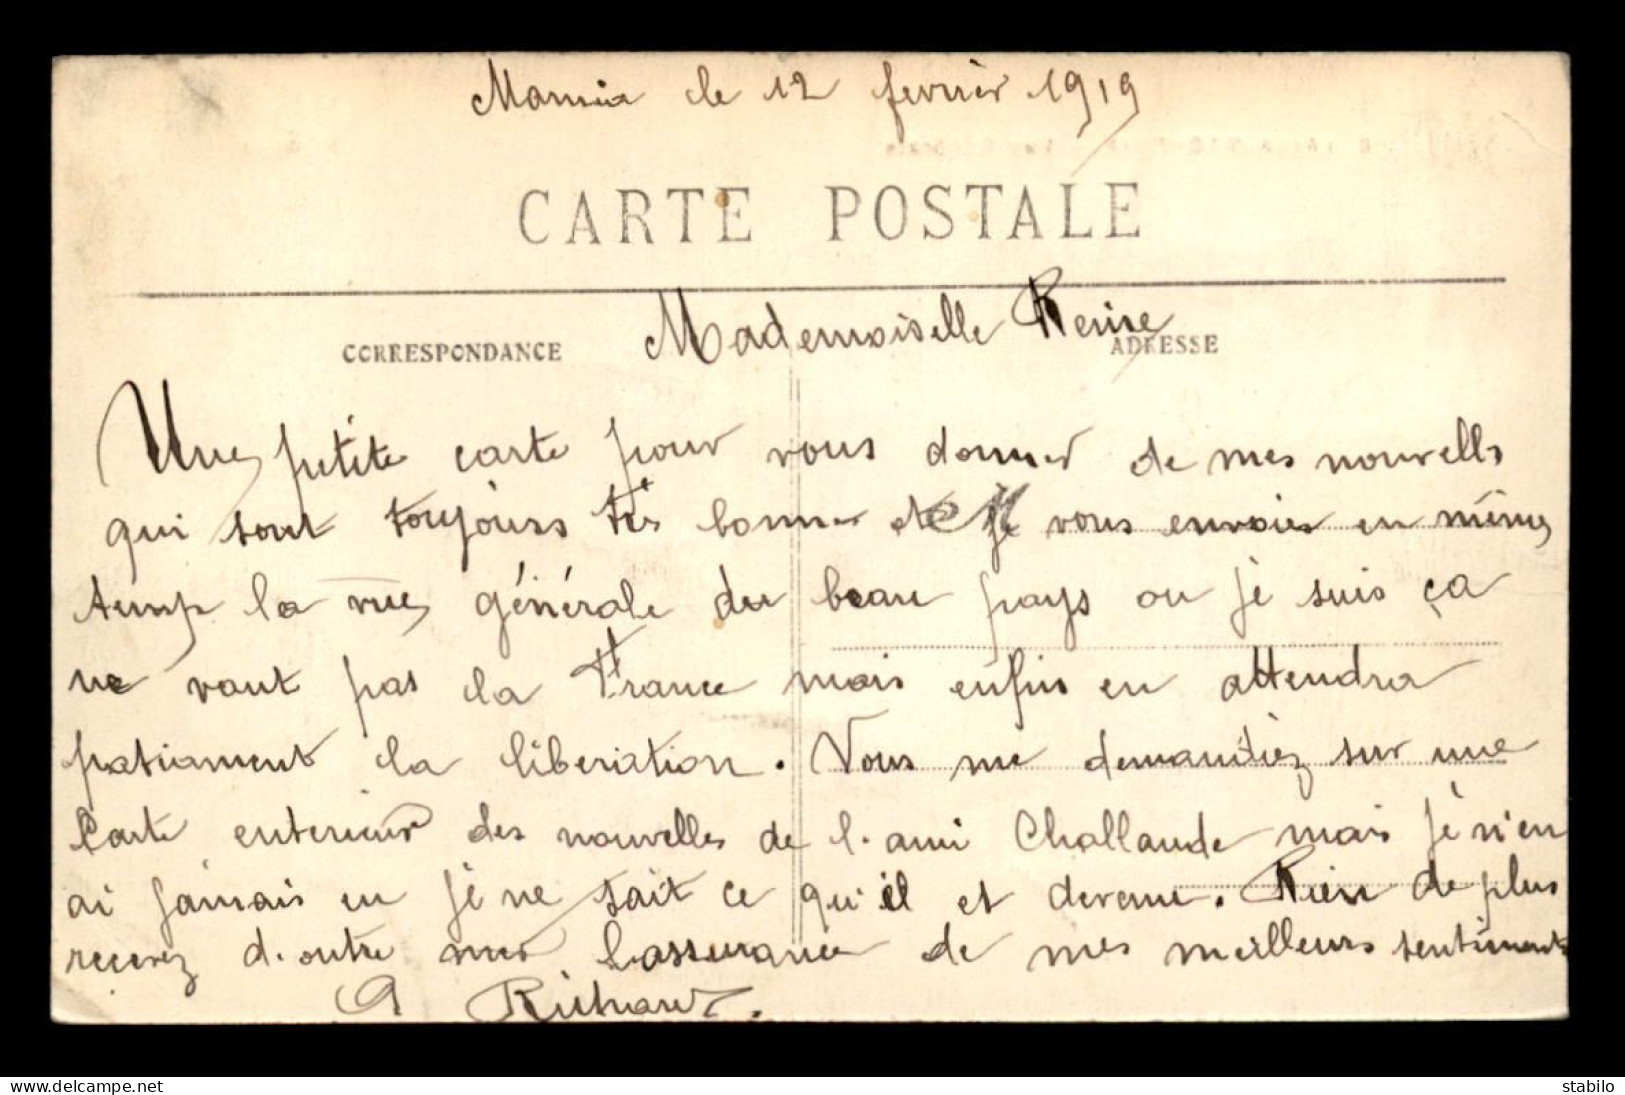 le 12 fevrièr 1919
CARTE POSTALE
CORRESPONDANCE
ADRESSE
Mademoiselle Renise
Une petite carte pour vous donner de mes nouvells
qui sont toujours très bonnes et Je vous envoies en même
temp la vue générale du beau pays ou je suis ça
ne vaut pas la France mais enfin en attendra
patiament la liberation. Vous me demandiez sur une
Carte enterieur des nouvelles de l'ami Challande mais je n'en
ai jamais eu je ne sait ce qu'il et devenu. Rien de plus
recevez d'outre mer l'assurance de mes meilleurs sentiments
A Richard.
www.delcampe.net
stabilo